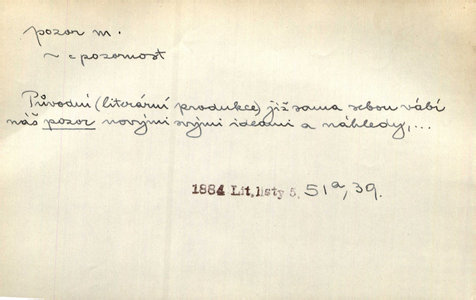 pozor m.
~ = pozornost
Původní (literární produkce) již sama sebou vábí
náš pozor novými svými ideami a náhledy,...
1884 Lit.listy 5, 51a, 39.